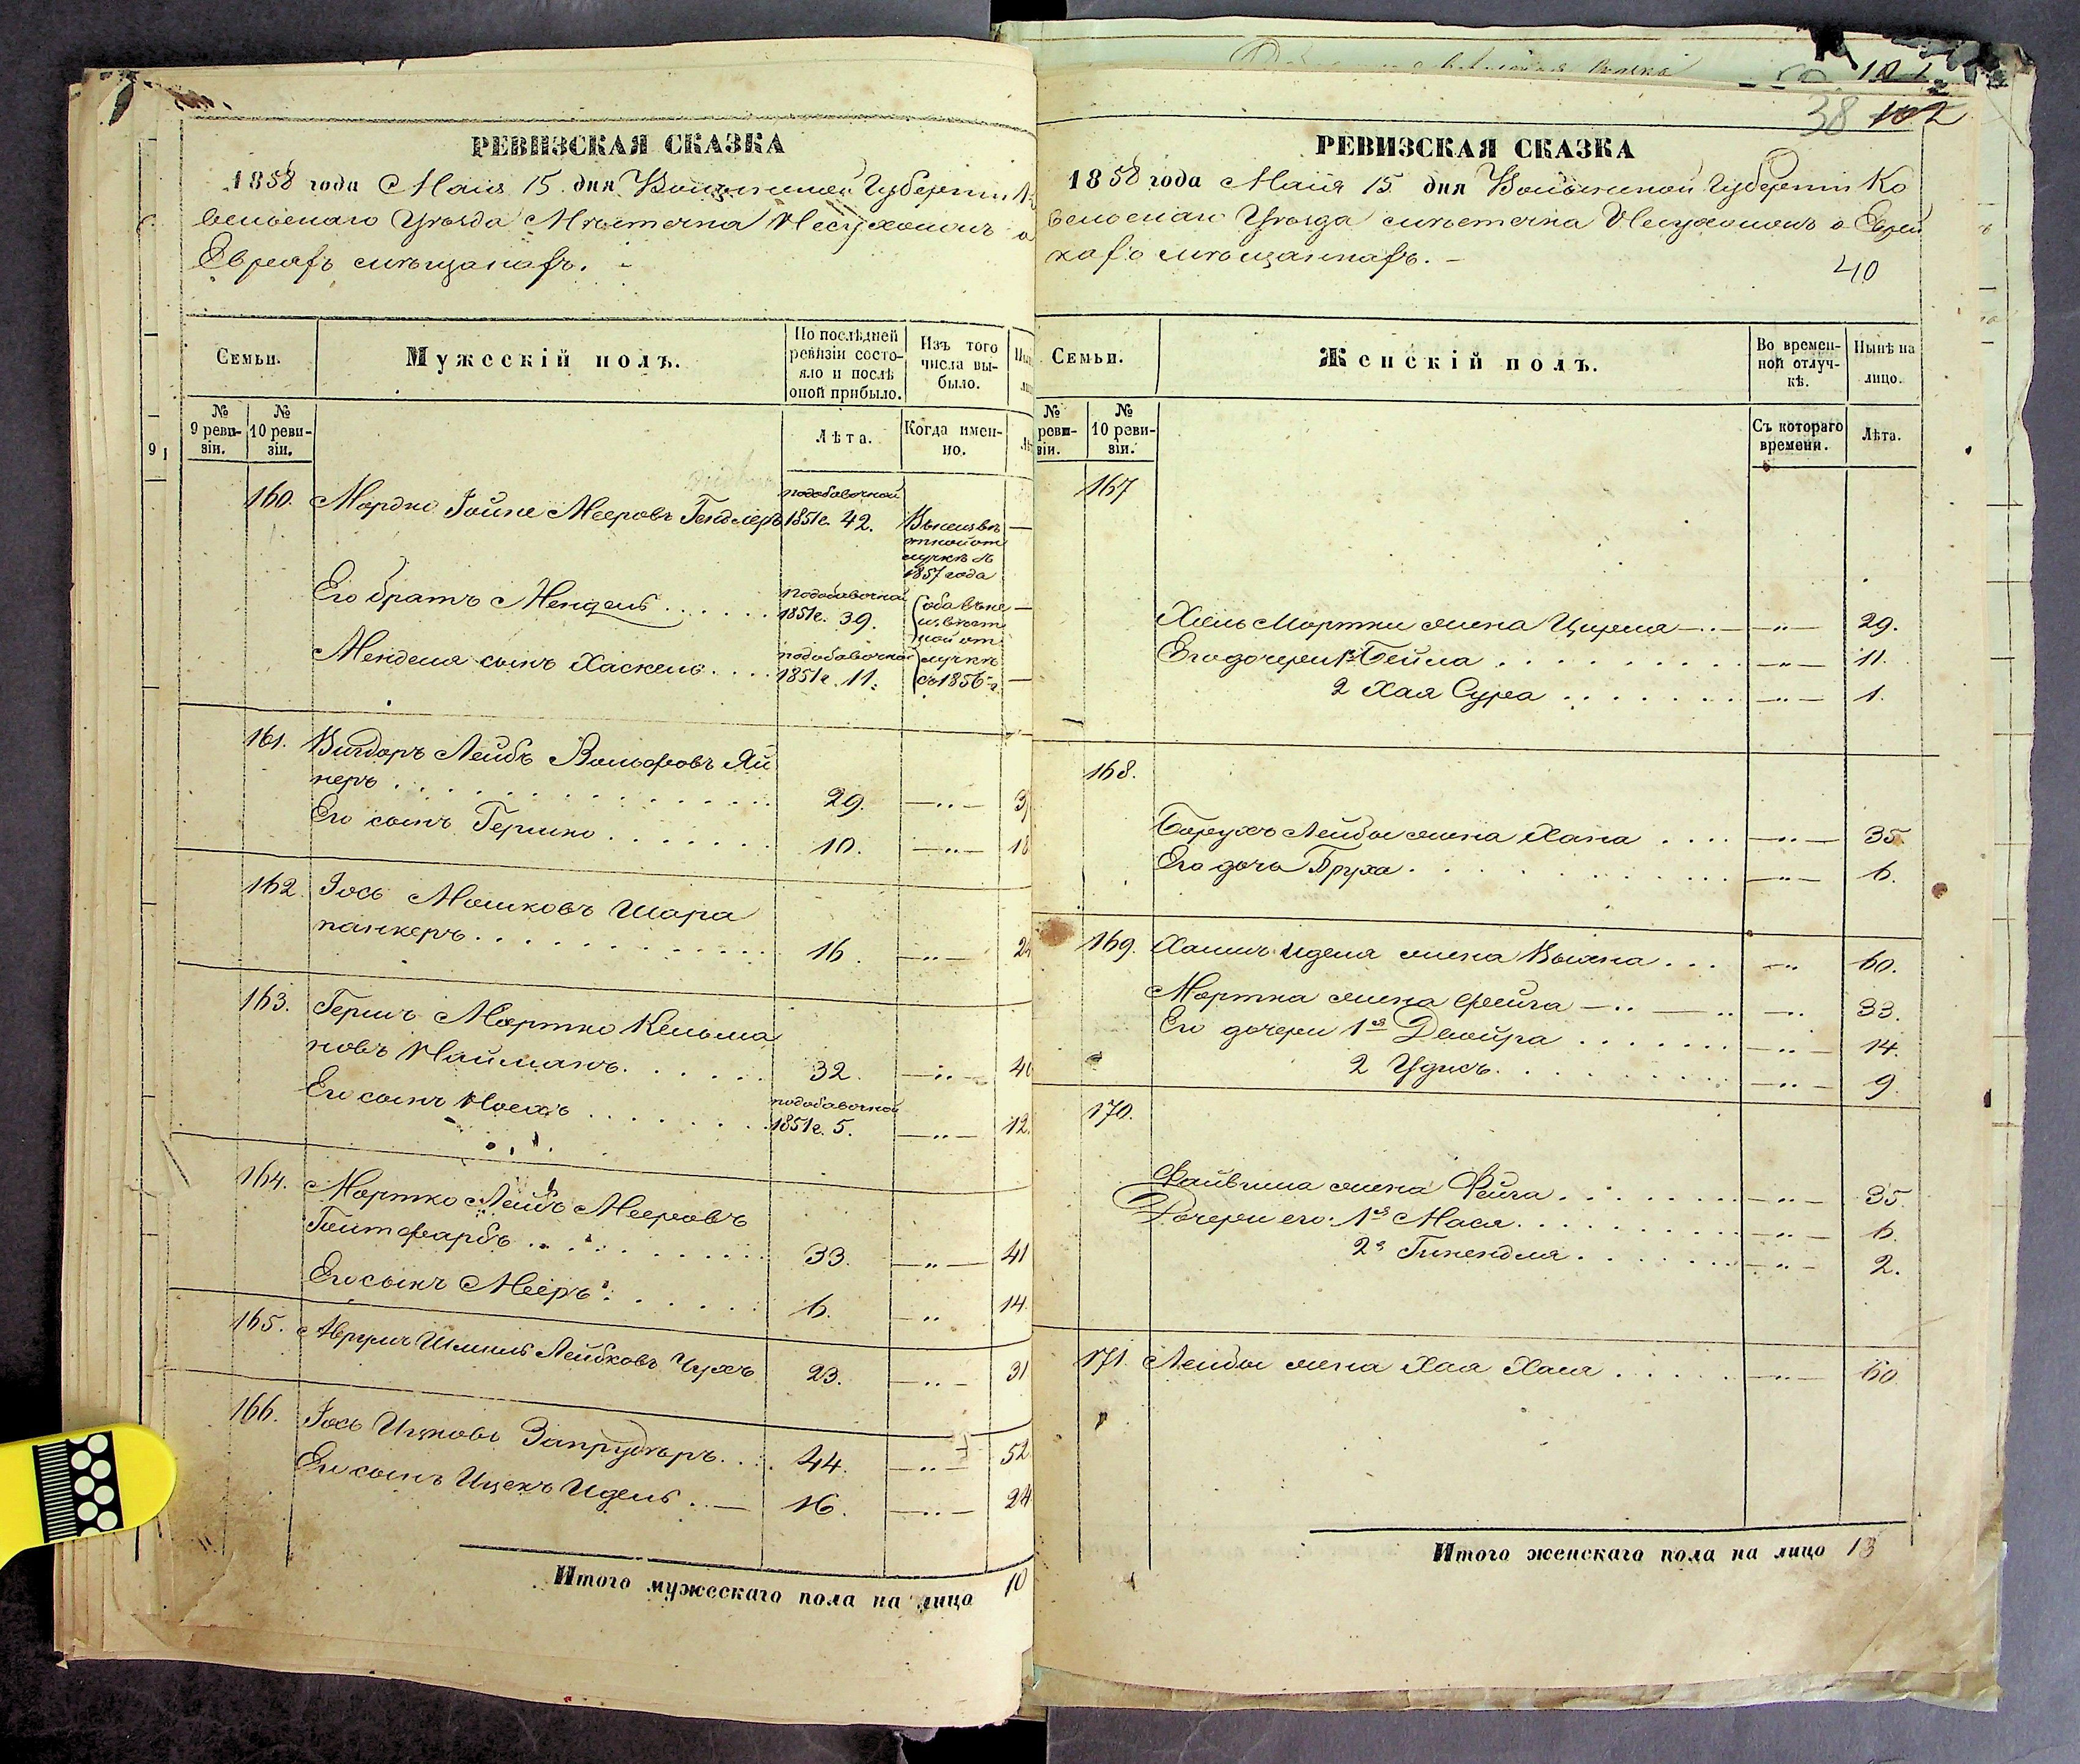 РЕВИЗСКАЯ СКАЗКА
1858 года Маія 15 дня Волынской Губерніи
вельскаго Уѣзда Мѣстечка Несухоижъ о
Евреяхъ мѣщанахъ.
Семьи.
Мужескій полъ.
По послѣдней ревизіи состояло и послѣ оной прибыло.
Изъ того числа выбыло.
№ 9 ревизіи.
№ 10 ревизіи.
Лѣта.
Когда именно.
160. Мордко Іойне Мееровъ Гендлеръ подобавочной 1851 г. 42. Въ неизвѣстной отлучкѣ съ 1857 года —
Его братъ Мендель подобавочной 1851 г. 39. оба въ неизвѣстной отлучкѣ съ 1856 г. —
Менделя сынъ Хаскель подобавочной 1851 г. 11. —
161. Вигдоръ Лейбъ Вольфовъ Яй
неръ 29. —"—
Его сынъ Гершко 10. —"— 18
162. Іось Мошковъ Шара
панкеръ 16. —"— 24
163. Гершъ Мортко Кельма
новъ Найманъ 32. —"— 40
Его сынъ Ноехъ подобавочной 1851 г. 5. —"— 12.
164. Мортко Лейбъ Мееровъ
Гольтфарбъ 33. —"— 41
Его сынъ Мееръ 6. " 14.
165. Аврумъ Шмиль Лейбковъ Чухъ 23. —"— 31
166. Іось Ицковъ Запрудеръ 44. —"— 52
Его сынъ Ицекъ Идель 16. —"— 24
Итого мужескаго пола на лицо 10
101
38 102
РЕВИЗСКАЯ СКАЗКА
1858 года Маія 15 дня Волынской Губерніи Ко
вельскаго Уѣзда мѣстечка Несухоижъ о Еврей
кахъ мѣщанкахъ.
40
Семьи.
Женскій полъ.
Во временной отлучкѣ.
Нынѣ на лицо.
№ ревизіи.
№ 10 ревизіи.
Съ котораго времени.
Лѣта.
167
Хиль Мортки жена Цирля —"— 29.
Его дочери 1я Бейла —"— 11.
2 Хая Сура —"— 1.
168.
Борухъ Лейбы жена Хана —"— 35.
Его дочь Бруха —"— 6.
169. Хаимъ Иделя жена —"— 60.
Мортка жена Фейга —"— 33.
Его дочери 1я Двойра —"— 14.
2 Удись —"— 9.
170.
Файвиша жена Фейга —"— 35.
Дочери его: 1я Мася —"— 6.
2я Гинендля —"— 2.
171. Лейбы жена Хая Хася —"— 60
Итого женскаго пола на лицо 13